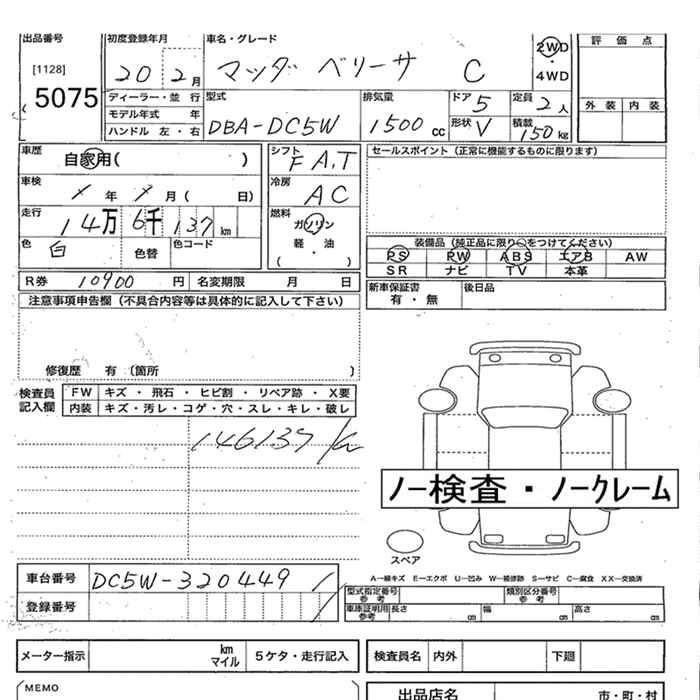 出品番号 初度登録年月 車名・グレード
[1128] 5075
20 2月 マツダ ベリーサ C
2WD・4WD
評価点
外装 内装
ディーラー・並行
モデル年式 年
ハンドル 左・右
型式 DBA-DC5W
排気量 1500cc
ドア 5
形状 V
定員 2人
積載 150kg
車歴 自家用( )
車検 年 月( 日)
走行 14万 6千 137 km
色 白 色替 色コード
シフト F A.T
冷房 AC
燃料 ガソリン
軽・油
( )
セールスポイント(正常に機能するものに限ります)
装備品(純正品に限り○をつけてください)
PS PW ABS エアB AW
SR ナビ TV 本革
R券 10900円 名変期限 月 日
新車保証書 有・無
後日品
注意事項申告欄(不具合内容等は具体的に記入して下さい)
修復歴 有〔箇所 〕
検査員記入欄
FW キズ・飛石・ヒビ割・リペア跡・X要
内装 キズ・汚レ・コゲ・穴・スレ・キレ・破レ
146137/km
ノー検査・ノークレーム
スペア
A―線キズ E―エクボ U―凹み W―補修跡 S―サビ C―腐食 XX―交換済
車台番号 DC5W-320449
登録番号
型式指定番号 参考
類別区分番号 参考
車庫証明用 参考 長さ cm 幅 cm 高さ cm
メーター指示 km マイル 5ケタ・走行記入
検査員名 内外 下廻
MEMO
出品店名 市・町・村